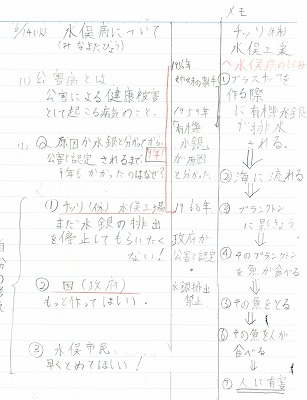 6/14(火) 水俣病について
(みなまたびょう)
(1) 公害病とは
公害による健康被害
として起こる病気のこと。
② 原因が水銀と分かってから、
公害と認定されるまで
9年もかかったのはなぜ?
9年!
(1) チッソ(株) 水俣工場
まだ水銀の排出
を停止してもらいたく
ない!
② 国(政府)
もっと作ってほしい。
③ 水俣市民
早くとめてほしい!
1956年
1959年
「有機
水銀」
が原因
と分かった。
1968年
政府が
公害と認定
水銀排出
禁止
メモ
チッソ(株)
水俣工業
水俣病のしくみ
① プラスチックを
作る際
に有機水銀
が排水
される。
② 海に流れる
③ プランクトン
にえいきょう
④ そのプランクトン
を魚が食べる
⑤ その魚をとる
⑥ その魚を人が
食べる
⑦ 人に有害